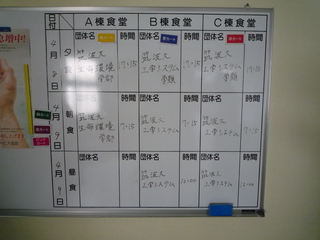 日付
A棟食堂
B棟食堂
C棟食堂
団体名
時間
団体名
時間
団体名
時間
4月8日
夕食
筑波大
生命環境
学部
17:15
筑波大
工学システム
学類
17:15
筑波大
工学システム
学類
17:15
団体名
時間
団体名
時間
団体名
時間
4月9日
朝食
筑波大
生命環境
学部
7:15
筑波大
工学システム
7:15
筑波大
工学システム
7:15
団体名
時間
団体名
時間
団体名
時間
4月9日
昼食
筑波大
工学システム
12:00
筑波大
工学システム
12:00